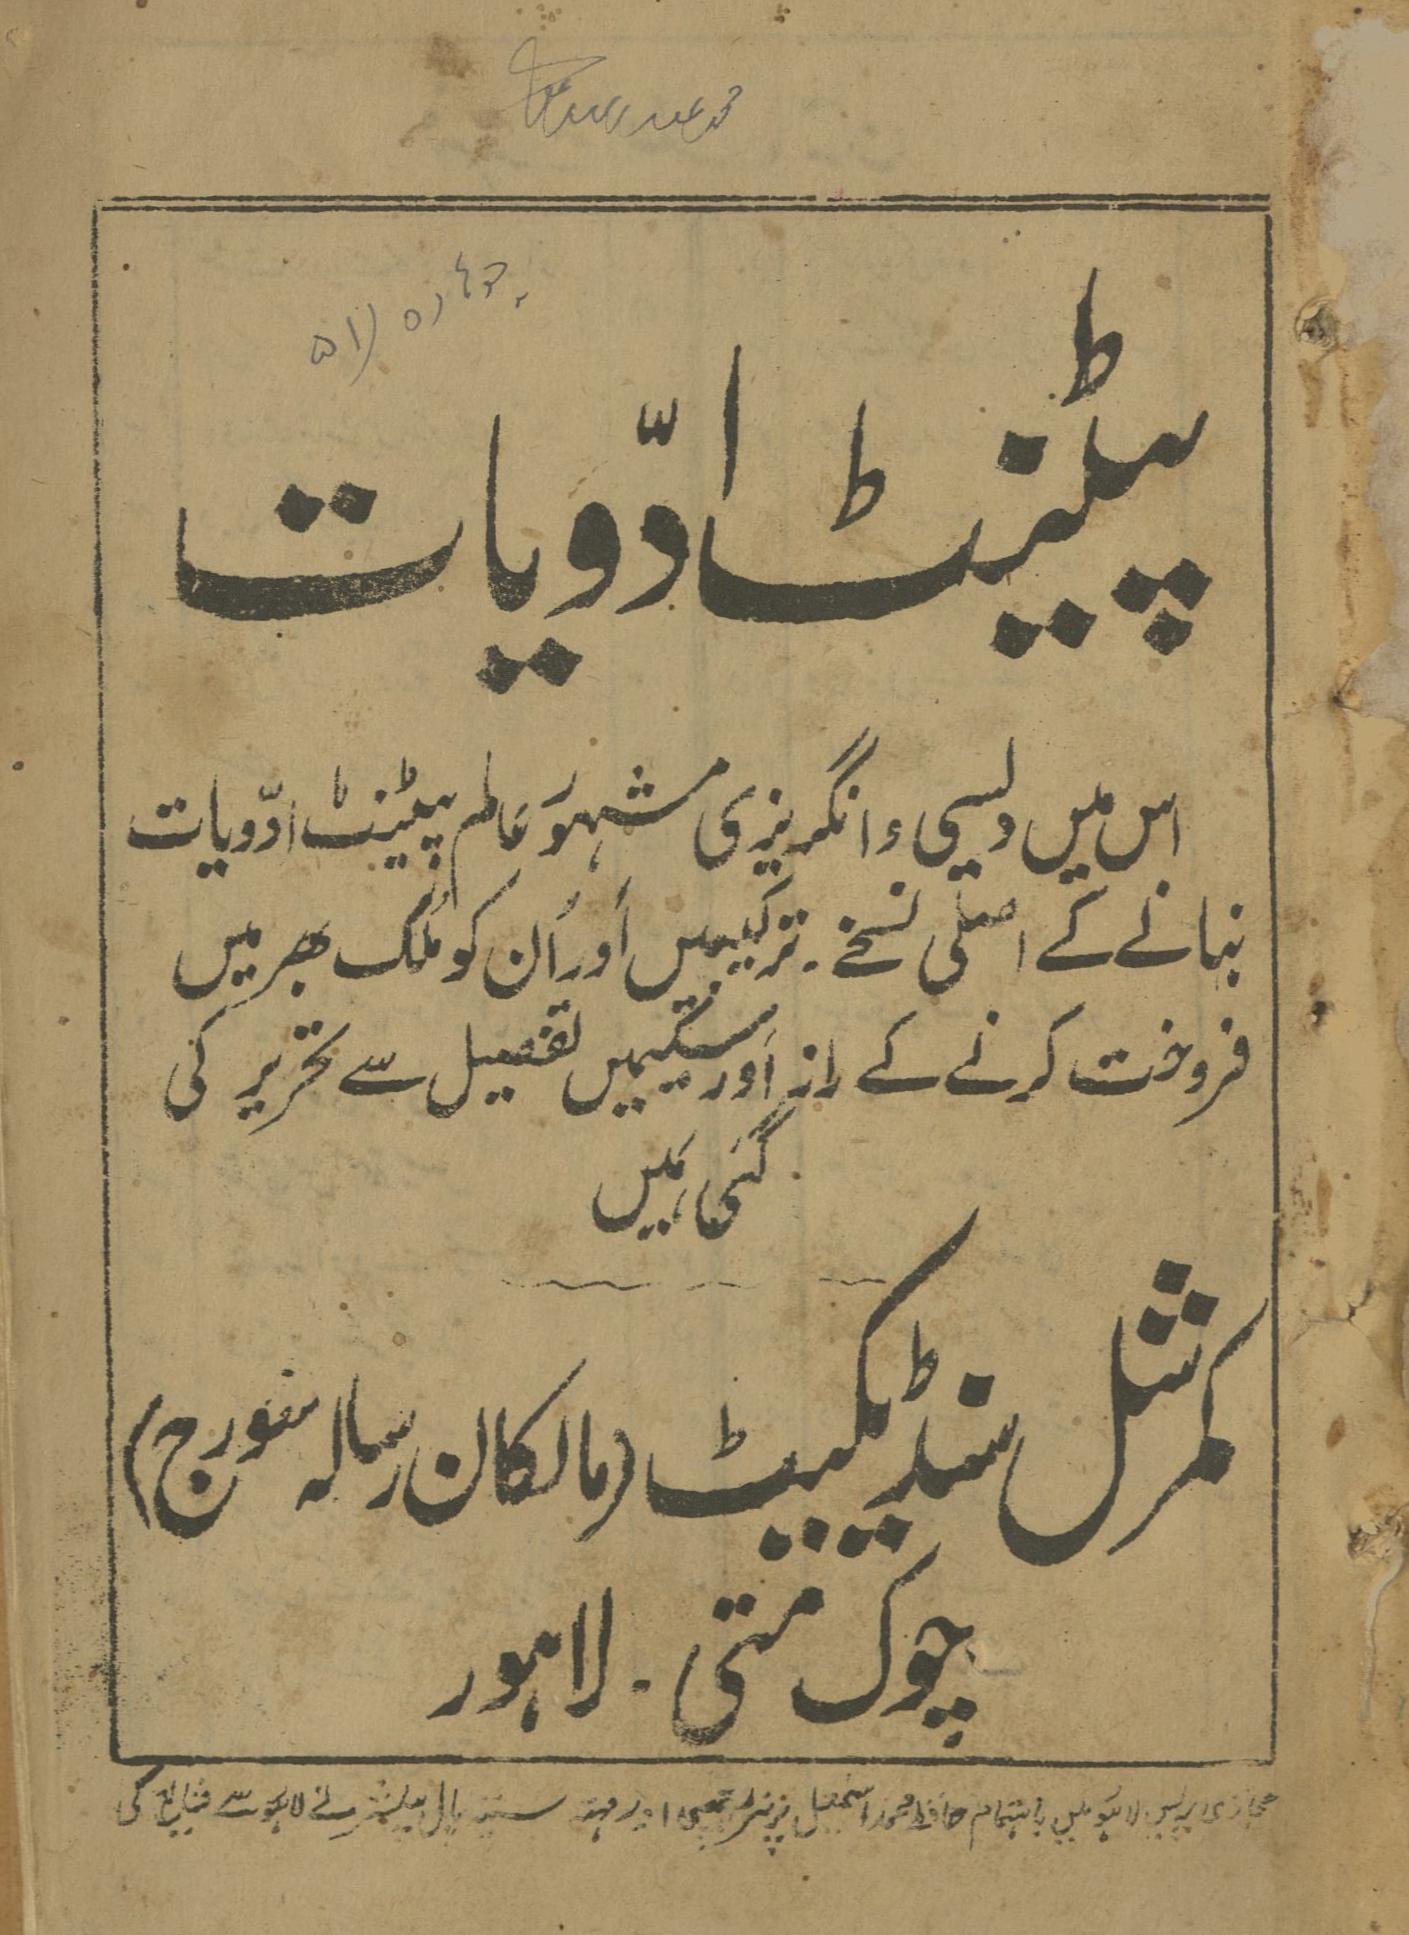 پیٹنٹ ادّویات
اس میں دیسی و انگریزی مشہور عالم پیٹنٹ ادّویات
بنانے کے اصلی نسخے۔ ترکیبیں اَور اُن کو مُلک بھر میں
فروخت کرنے کے راز اَور سکیمیں تفصیل سے تحریر کی
گئی ہَیں
کمرشل سنڈیکیٹ (مالکان رسالہ سورج)
چوک متی۔ لاہور
حجازی پریس لاہور میں باہتمام حافظ محمد اسمٰعیل پرنٹر چھپی اور مہتہ ستیہ پال پبلشر نے لاہور سے شایع کی